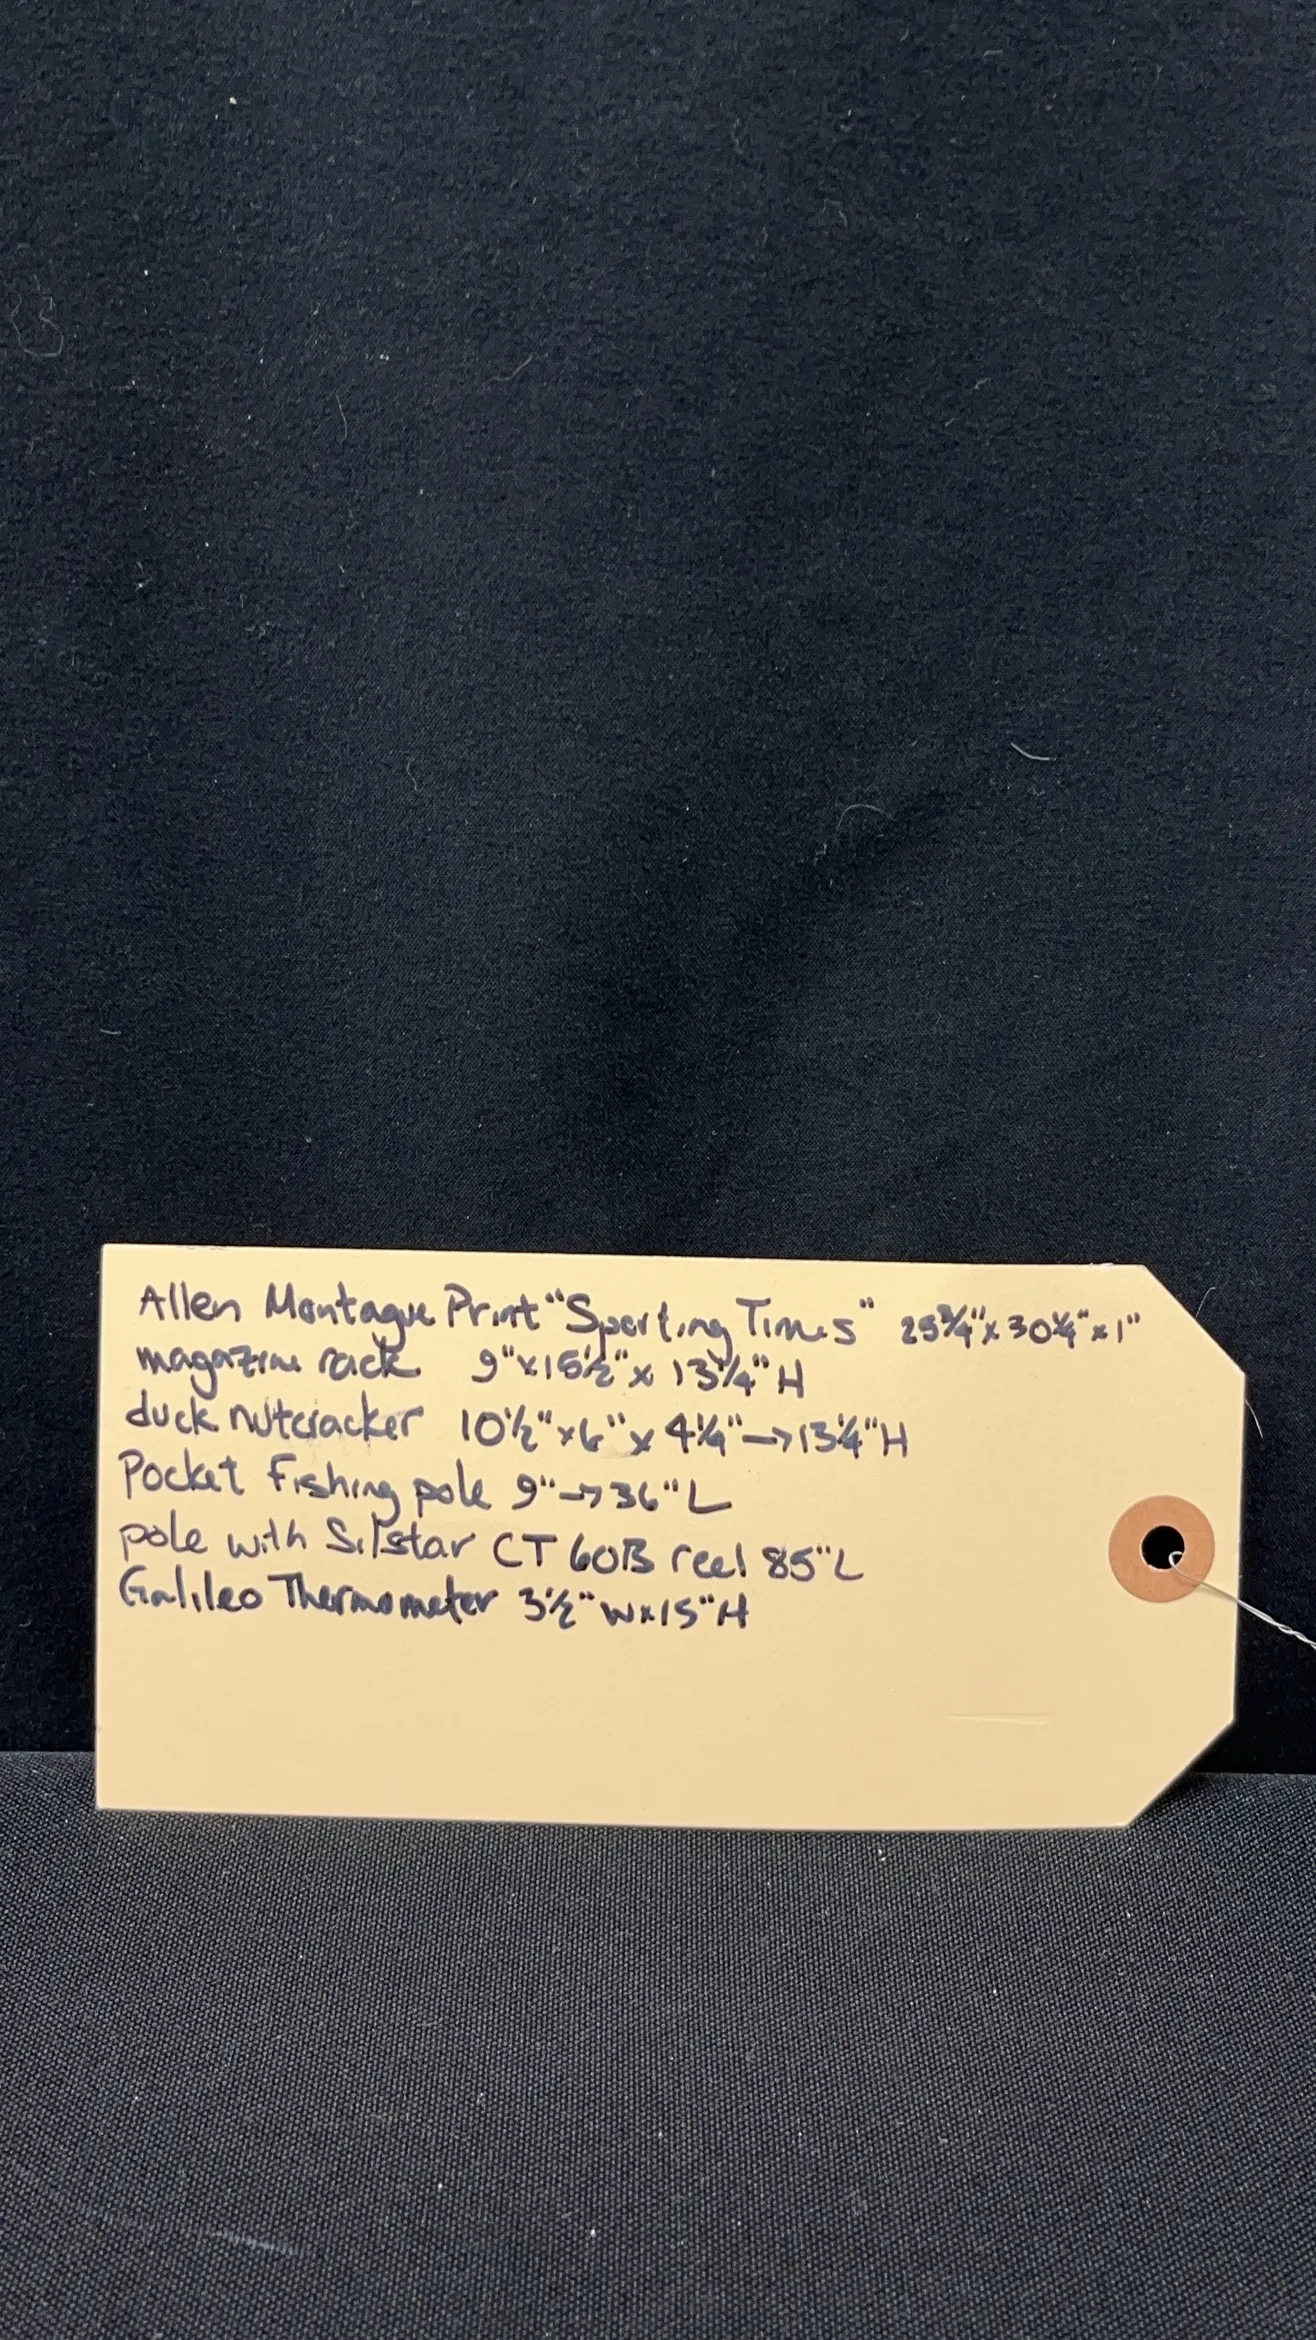 Allen Montague Print "Sporting Times" 25 3/4" x 30 1/4" x 1"
magazine rack 9" x 15 1/2" x 13 1/4" H
duck nutcracker 10 1/2" x 6" x 4 1/4" → 13 1/4" H
Pocket Fishing pole 9" → 36" L
pole with Silstar CT 60B reel 85" L
Galileo Thermometer 3 1/2" W x 15" H